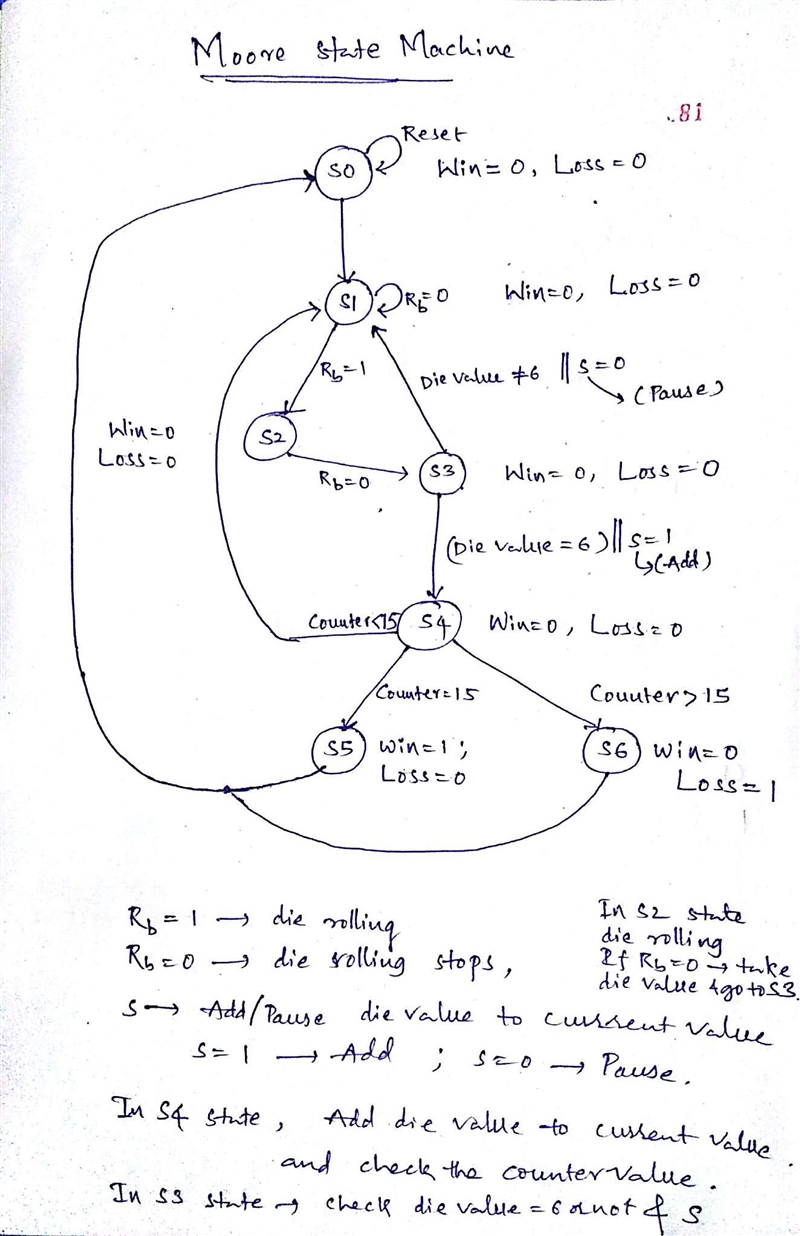 Moore State Machine
..81
Reset
S0
Win = 0, Loss = 0
S1
Rb=0
Win=0, Loss=0
Rb=1
Die value ≠6 || S=0
(Pause)
Win=0
Loss=0
S2
Rb=0
S3
Win= 0, Loss=0
(Die value = 6) || S=1
↳(Add)
Counter<15
S4
Win=0, Loss=0
Counter=15
Counter>15
S5
Win=1;
Loss=0
S6
Win=0
Loss=1
Rb = 1 → die rolling
Rb=0 → die rolling stops,
In S2 state
die rolling
If Rb=0 → take
die value & go to S3.
S → Add/Pause die value to current value
S=1 → Add ; S=0 → Pause.
In S4 state, Add die value to current value.
and check the counter value.
In S3 state → check die value = 6 or not & S